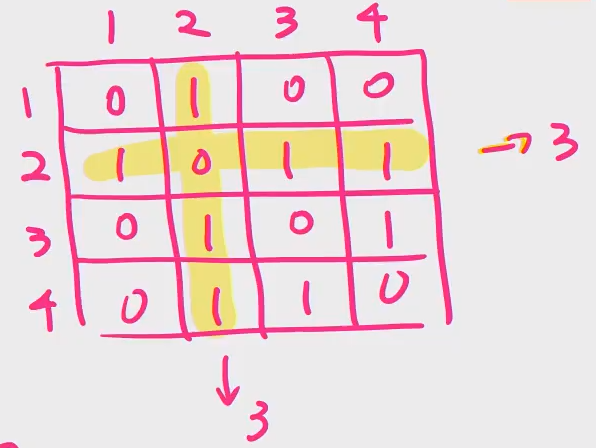 1 2 3 4
1 0 1 0 0
2 1 0 1 1 → 3
3 0 1 0 1
4 0 1 1 0
↓ 3